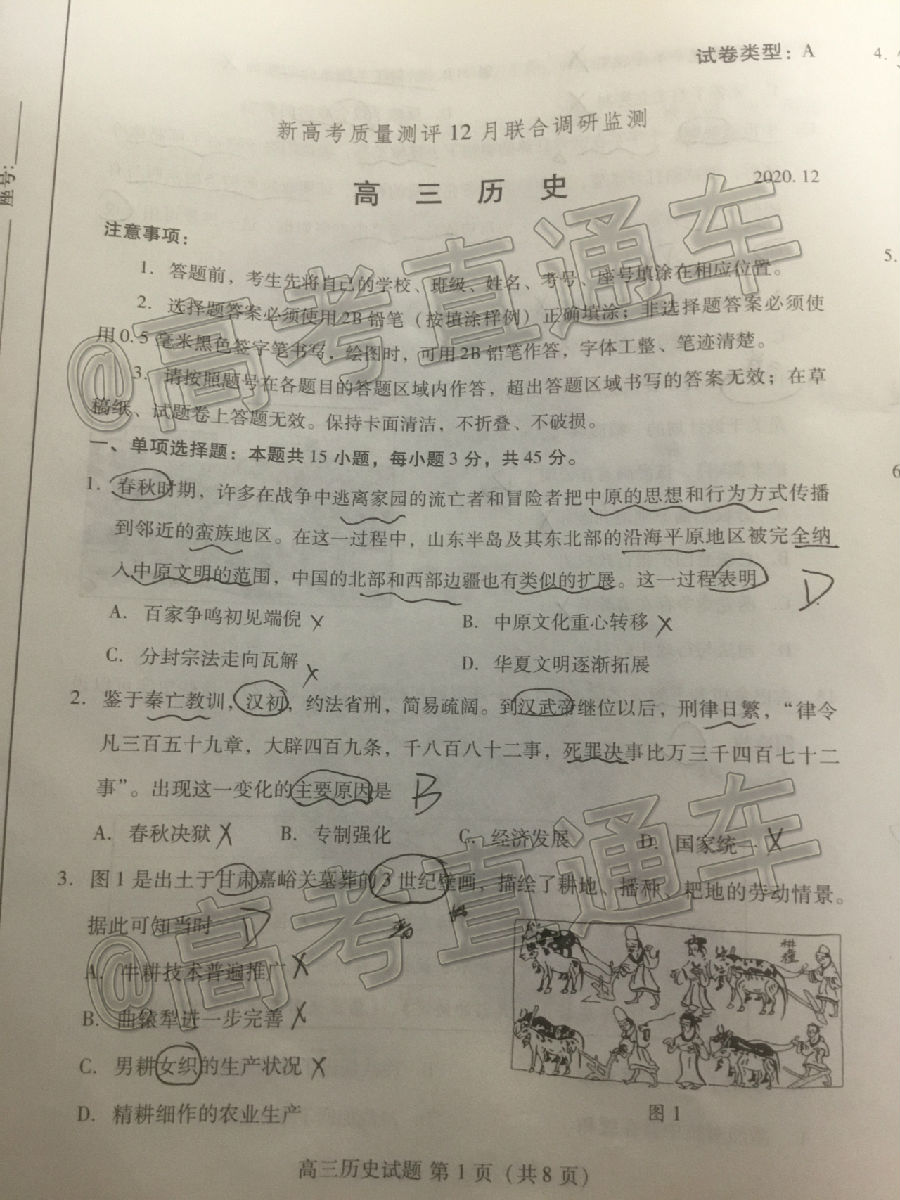 试卷类型：A
4.
新高考质量测评12月联合调研监测
高三历史
2020.12
座号：
注意事项：
1. 答题前，考生先将自己的学校、班级、姓名、考号、座号填涂在相应位置。
2. 选择题答案必须使用2B铅笔（按填涂样例）正确填涂；非选择题答案必须使
用0.5毫米黑色签字笔书写，绘图时，可用2B铅笔作答，字体工整、笔迹清楚。
3. 请按照题号在各题目的答题区域内作答，超出答题区域书写的答案无效；在草
稿纸、试题卷上答题无效。保持卡面清洁，不折叠、不破损。
@高考直通车
5.
一、单项选择题：本题共15小题，每小题3分，共45分。
6
1. 春秋时期，许多在战争中逃离家园的流亡者和冒险者把中原的思想和行为方式传播
到邻近的蛮族地区。在这一过程中，山东半岛及其东北部的沿海平原地区被完全纳
入中原文明的范围，中国的北部和西部边疆也有类似的扩展。这一过程表明 D
A. 百家争鸣初见端倪 × B. 中原文化重心转移 ×
C. 分封宗法走向瓦解 × D. 华夏文明逐渐拓展
2. 鉴于秦亡教训，汉初，约法省刑，简易疏阔。到汉武帝继位以后，刑律日繁，“律令
凡三百五十九章，大辟四百九条，千八百八十二事，死罪决事比万三千四百七十二
事”。出现这一变化的主要原因是 B
A. 春秋决狱 × B. 专制强化 C. 经济发展 D. 国家统一 ×
3. 图1是出土于甘肃嘉峪关墓葬的3世纪壁画，描绘了耕地、播种、耙地的劳动情景。
据此可知当时 D
A. 牛耕技术普遍推广 ×
B. 曲辕犁进一步完善 ×
C. 男耕女织的生产状况 ×
D. 精耕细作的农业生产
@高考直通车
图1
高三历史试题 第1页（共8页）